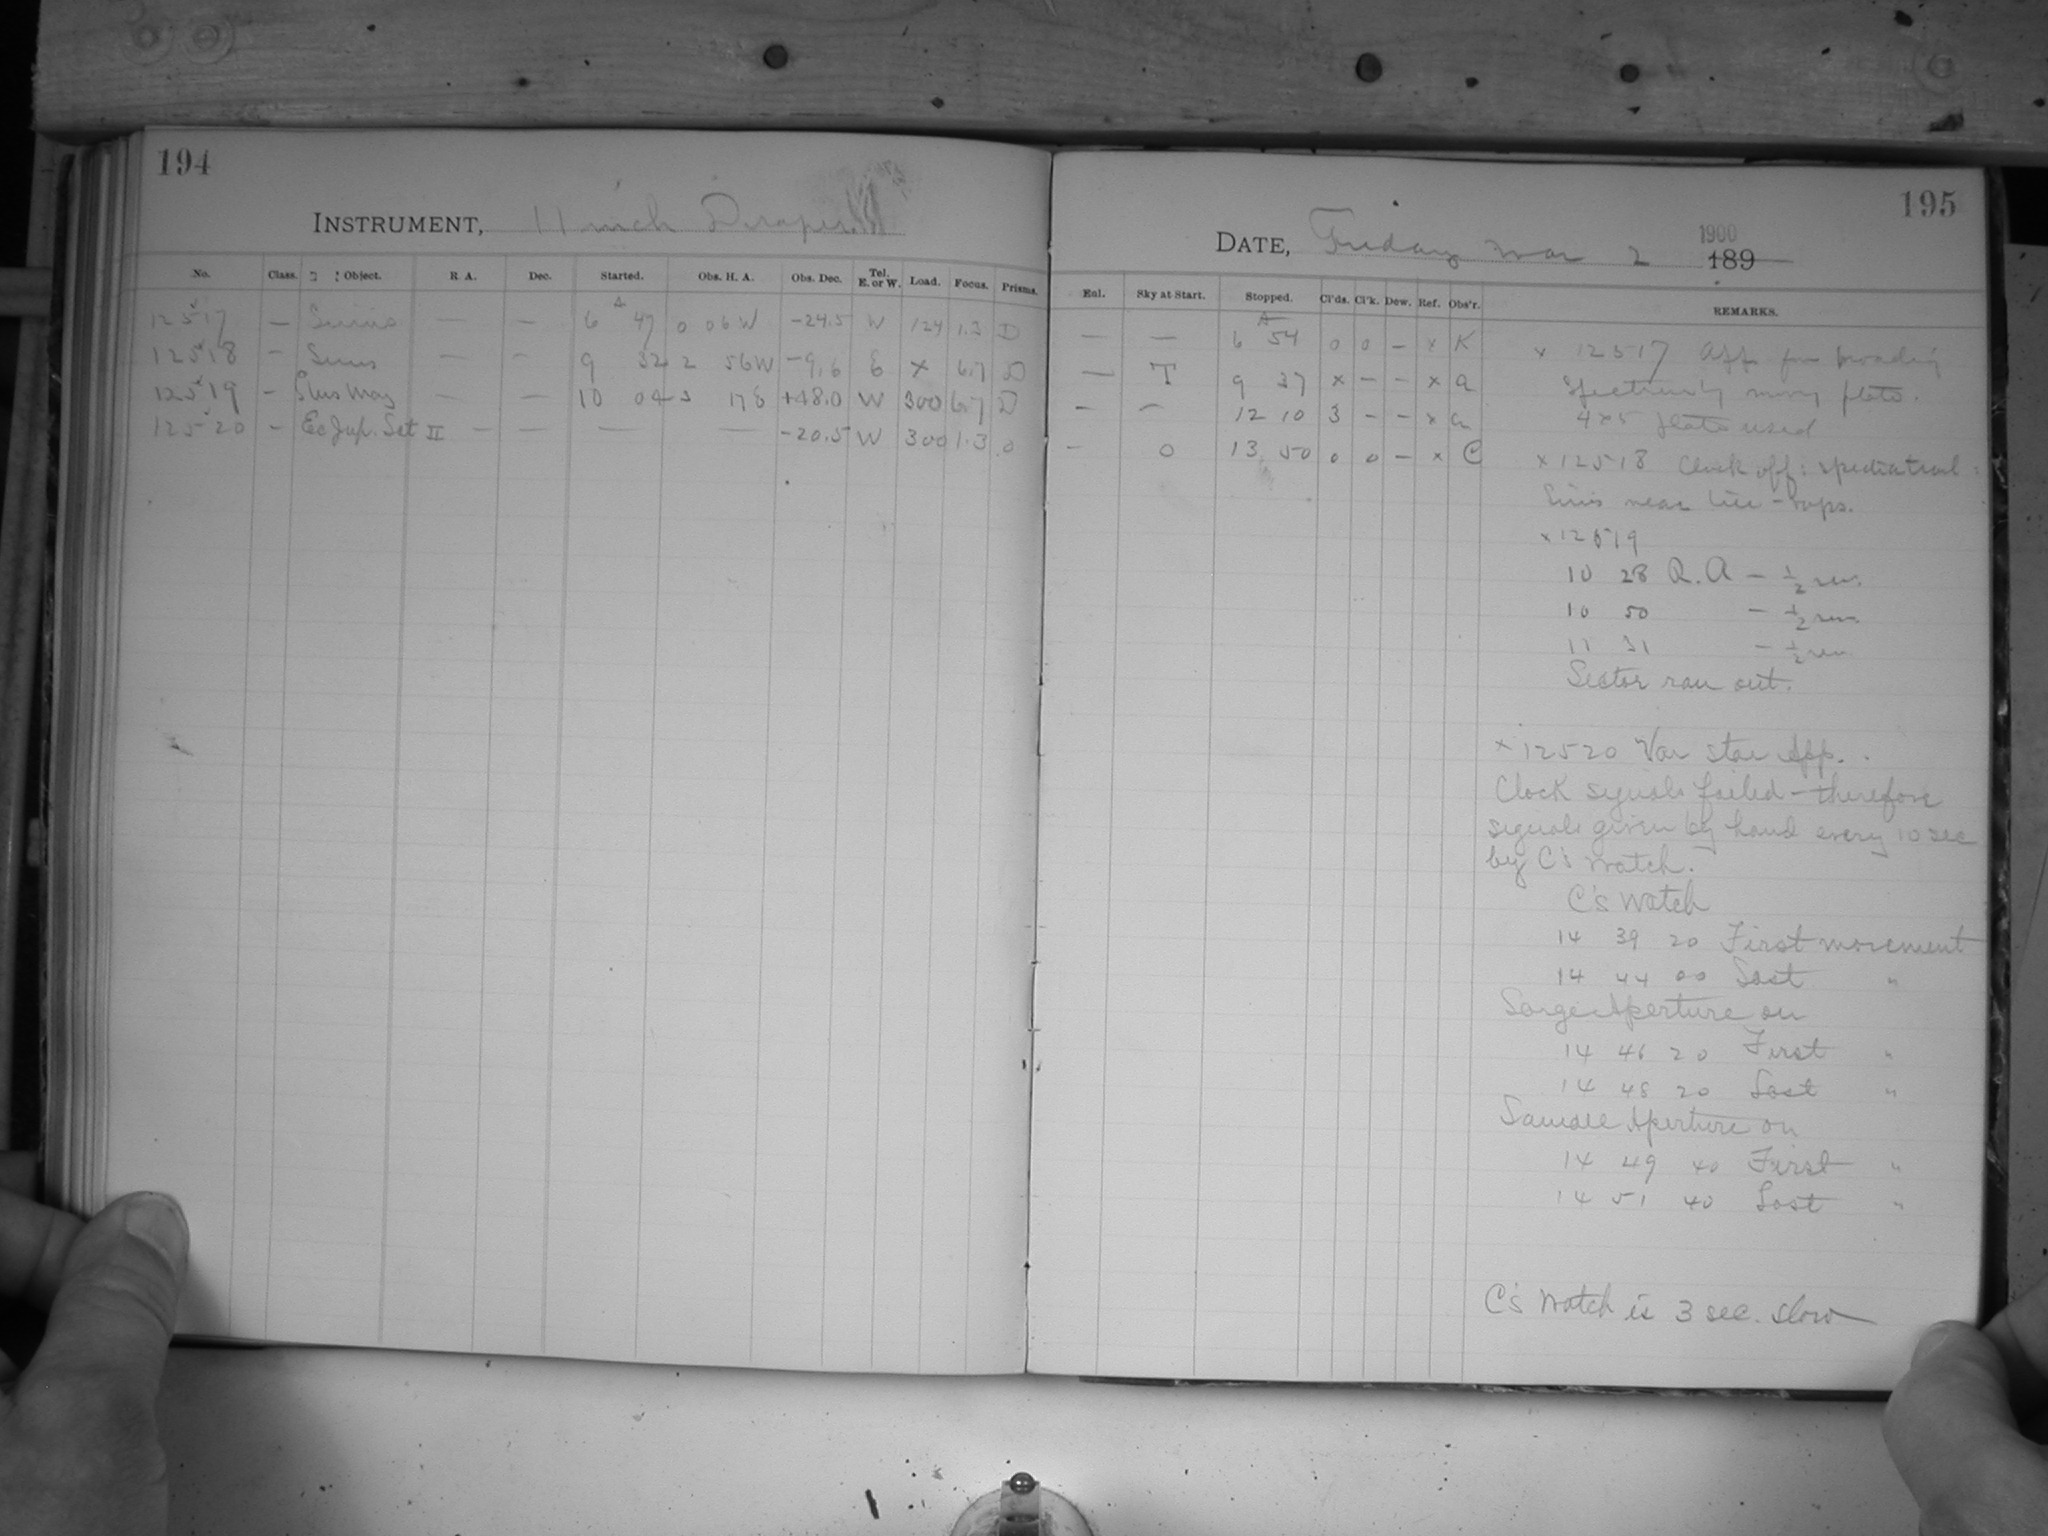 194
INSTRUMENT, 11 inch Draper
No. Class. Object. R. A. Dec. Started. Obs. H. A. Obs. Dec. Tel. E. or W. Load. Focus. Prisms.
12517 — Sirius — — 6 47 0 06 W -24.5 W 124 1.3 D
12518 — Sirius — — 9 32 2 56 W -9.6 E x 6.7 D
12519 — — — 10 04 3 17 E +48.0 W 300 6.7 D
12520 — Ec Jup. Sat II — — — — -20.5 W 300 1.3 0
195
DATE, Friday Mar 2 1900 189
Eol. Sky at Start. Stopped. Cl'ds. Cl'k. Dew. Ref. Obs'r. REMARKS.
— — 6 54 0 0 — x K
— T 9 37 x — — x a
— — 12 10 3 — — x a
— 0 13 50 0 0 — x C
x 12517 App for broad'g
spectrum by mov'g plate.
4x5 plate used
x 12518 Clock off:
Sirius near tree-tops.
x 12519
10 28 R.A — ½ rev.
10 50 — ½ rev.
11 31 — ½ rev.
Sector ran out.
x 12520 Var star App.
Clock signals failed — therefore
signals given by hand every 10 sec
by C's watch.
C's Watch
14 39 20 First movement
14 44 00 Last "
Large Aperture on
14 46 20 First "
14 48 20 Last "
Small Aperture on
14 49 40 First "
14 51 40 Last "
C's Watch is 3 sec. slow